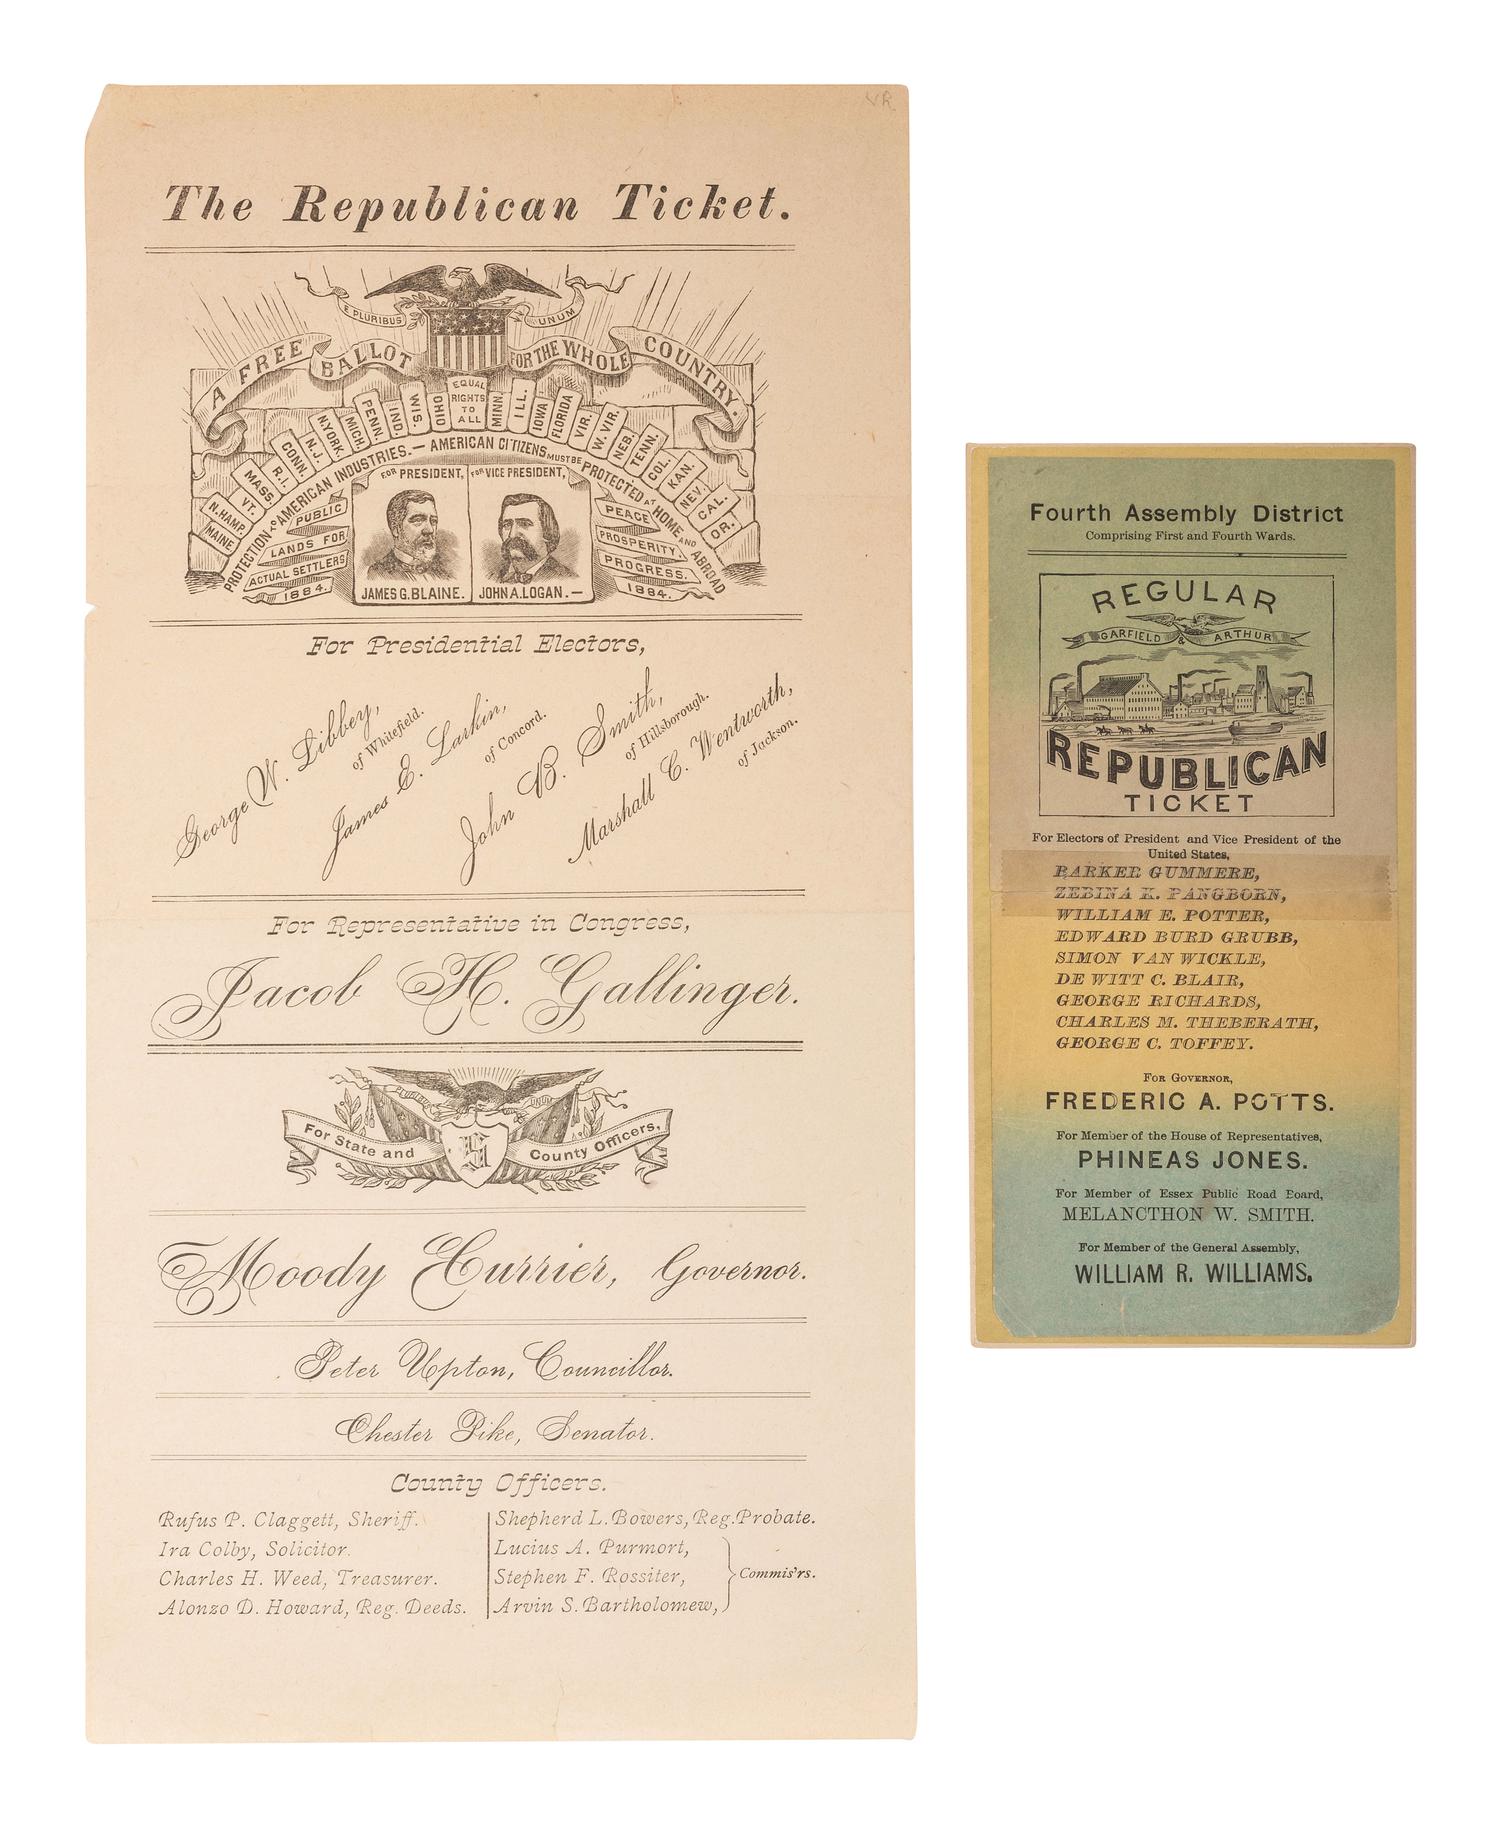 VR
The Republican Ticket.
E PLURIBUS UNUM
A FREE BALLOT FOR THE WHOLE COUNTRY.
EQUAL RIGHTS TO ALL
MAINE N.HAMP. VT. MASS. R.I. CONN. N.J. N.YORK. MICH. PENN. IND. WIS. OHIO MINN. ILL. IOWA FLORIDA VIR. W. VIR. NEB. TENN. COL. KAN. NEV. CAL. OR.
PROTECTION TO AMERICAN INDUSTRIES. — AMERICAN CITIZENS MUST BE PROTECTED AT HOME AND ABROAD
PUBLIC
LANDS FOR
ACTUAL SETTLERS
1884.
FOR PRESIDENT,
JAMES G. BLAINE.
FOR VICE PRESIDENT,
JOHN A. LOGAN. —
PEACE
PROSPERITY.
PROGRESS.
1884.
For Presidential Electors,
George W. Libbey,
of Whitefield.
James E. Larkin,
of Concord.
John B. Smith,
of Hillsborough.
Marshall C. Wentworth,
of Jackson.
For Representative in Congress,
Jacob H. Gallinger.
For State and County Officers,
Moody Currier, Governor.
Peter Upton, Councillor.
Chester Pike, Senator.
County Officers.
Rufus P. Claggett, Sheriff.
Ira Colby, Solicitor.
Charles H. Weed, Treasurer.
Alonzo D. Howard, Reg. Deeds.
Shepherd L. Bowers, Reg. Probate.
Lucius A. Purmort,
Stephen F. Rossiter,
Arvin S. Bartholomew,
Commis'rs.
Fourth Assembly District
Comprising First and Fourth Wards.
REGULAR
GARFIELD & ARTHUR
REPUBLICAN
TICKET
For Electors of President and Vice President of the
United States,
BARKER GUMMERE,
ZEBINA K. PANGBORN,
WILLIAM E. POTTER,
EDWARD BURD GRUBB,
SIMON VAN WICKLE,
DE WITT C. BLAIR,
GEORGE RICHARDS,
CHARLES M. THEBERATH,
GEORGE C. TOFFEY.
FOR GOVERNOR,
FREDERIC A. POTTS.
For Member of the House of Representatives,
PHINEAS JONES.
For Member of Essex Public Road Board,
MELANCTHON W. SMITH.
For Member of the General Assembly,
WILLIAM R. WILLIAMS.